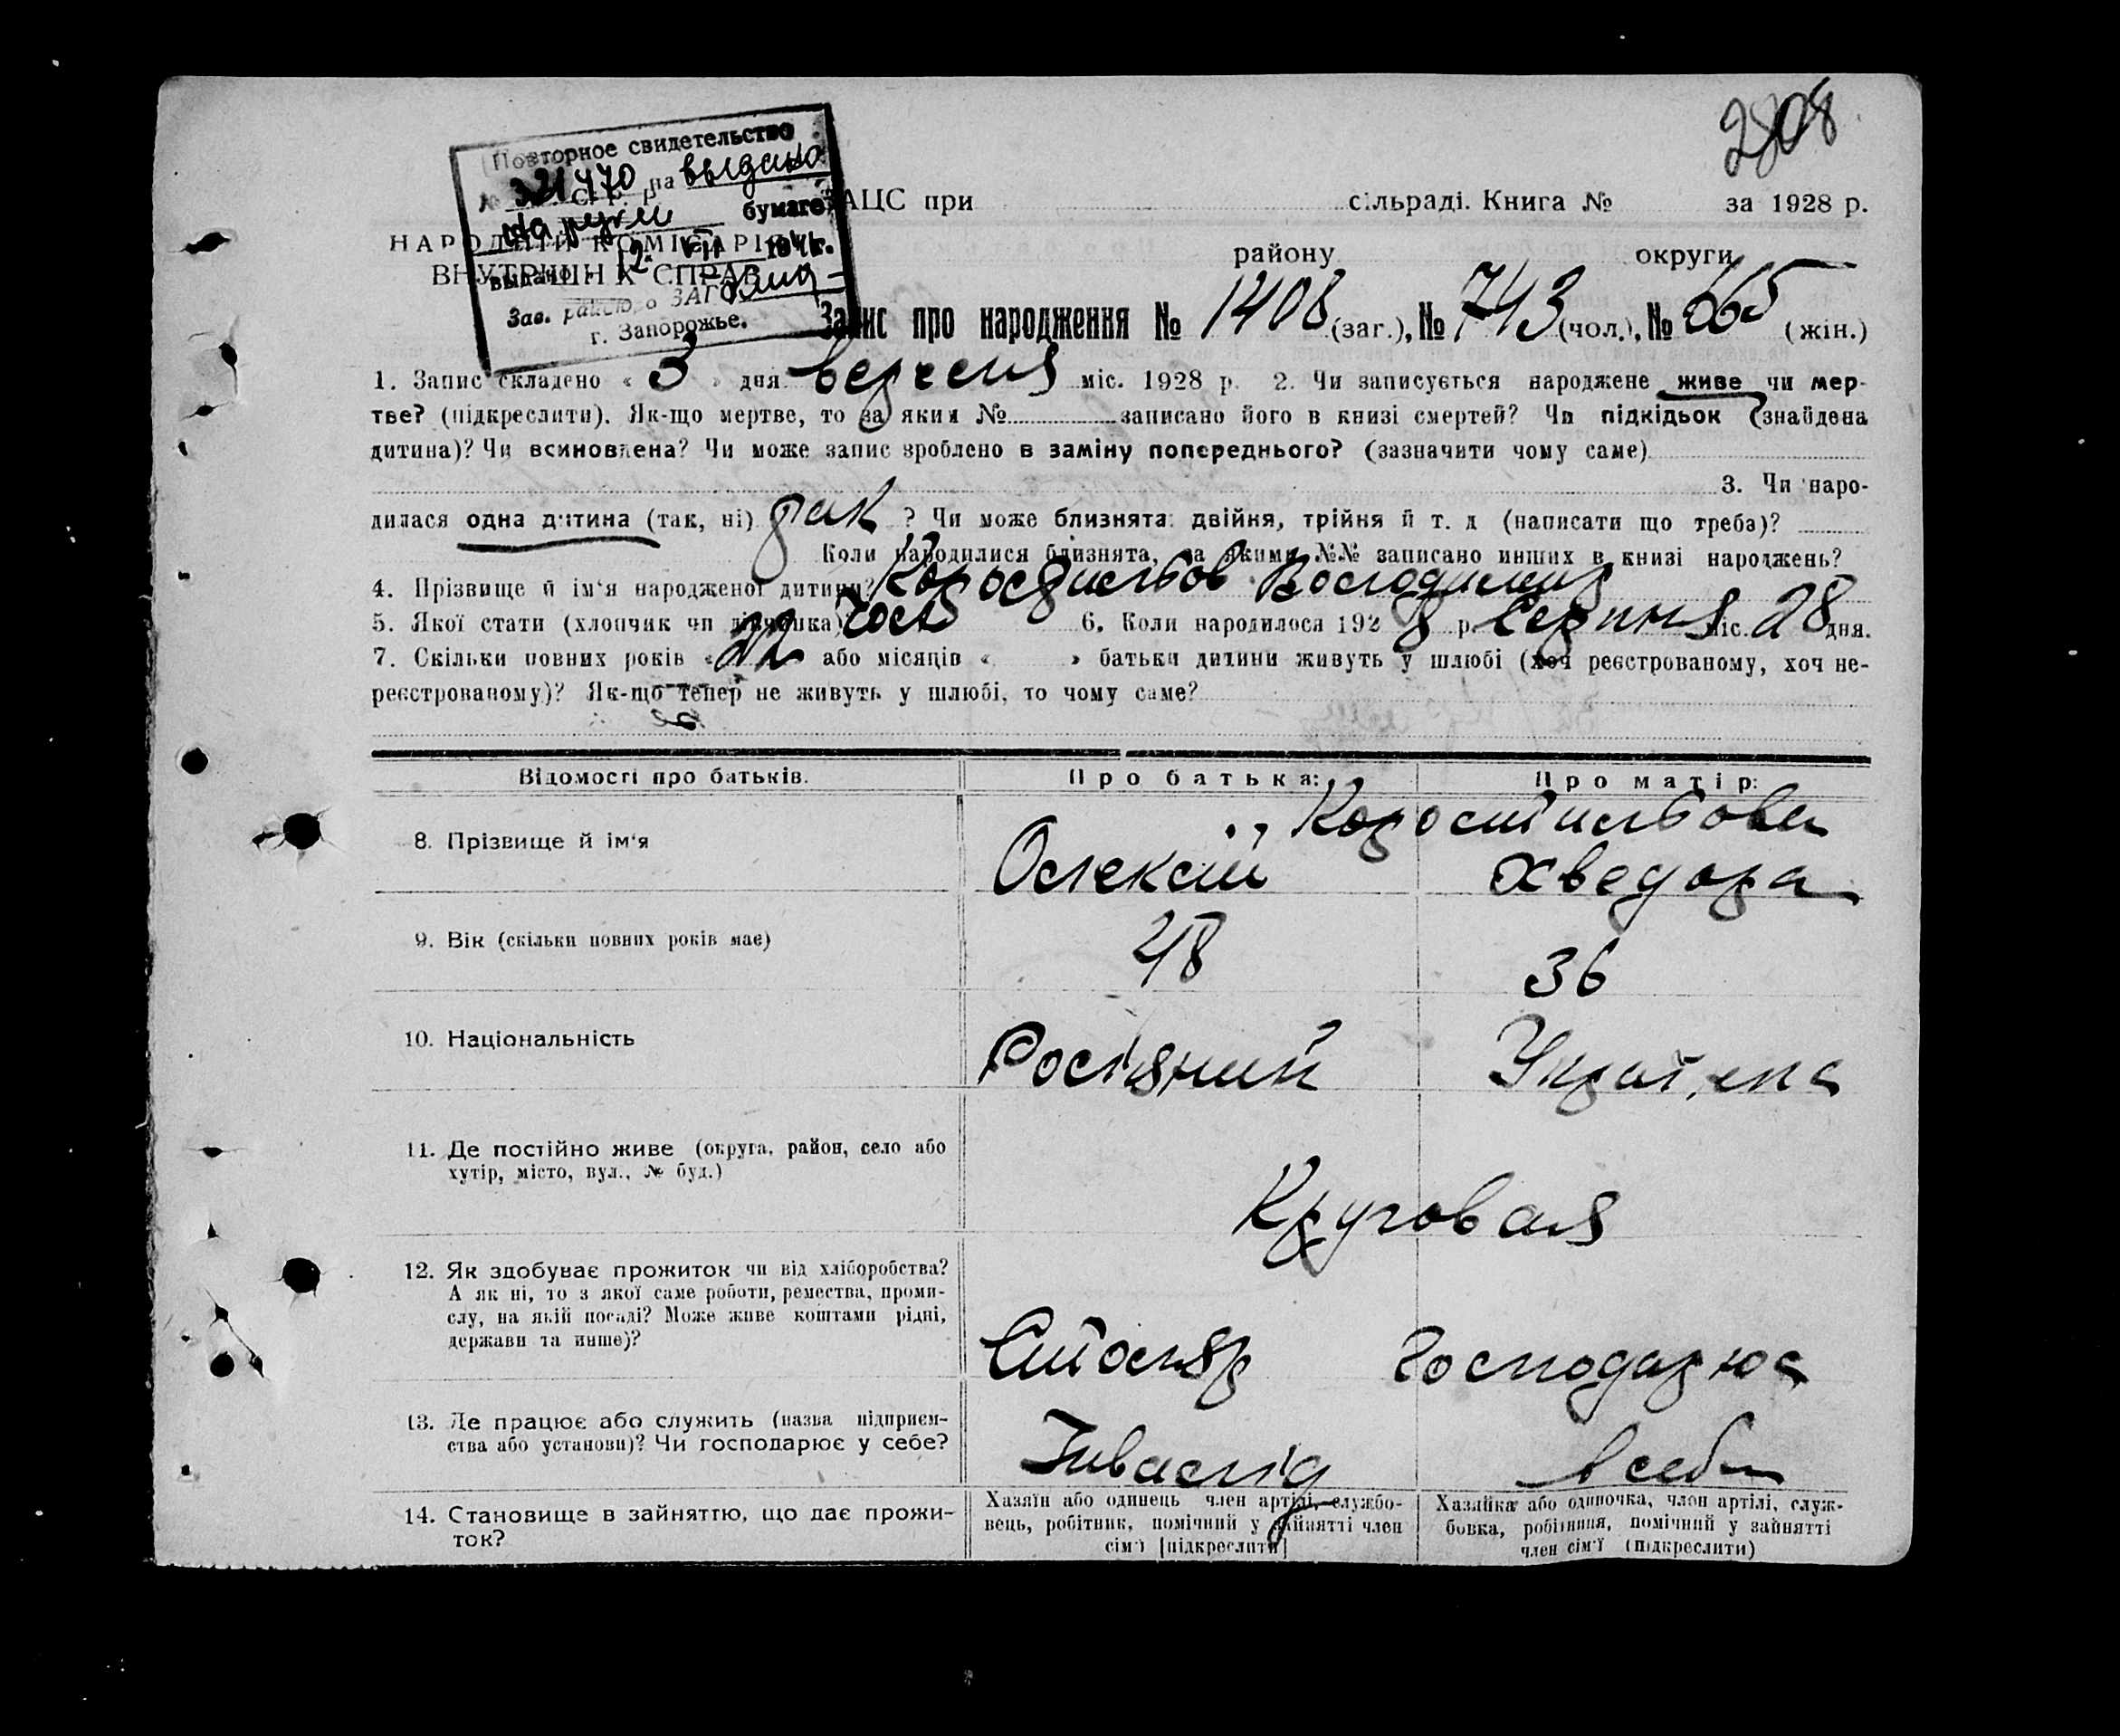 2808
Повторное свидетельство
№ 321470 на
бумаге
выдано 12 VII 194 г.
Зав. райбюро ЗАГС
г. Запорожье.
ЗАЦС при сільраді. Книга № за 1928 р.
НАРОДНІЙ КОМІСАРІЯТ
ВНУТРІШНІХ СПРАВ
району округи
Запис про народження № 1408 (заг.), № 743 (чол.), № 665 (жін.)
1. Запис складено « 3 » дня вересня міс. 1928 р. 2. Чи записується народжене живе чи мер-
тве? (підкреслити). Як-що мертве, то за яким № записано його в книзі смертей? Чи підкідьок (знайдена
дитина)? Чи всиновлена? Чи може запис зроблено в заміну попереднього? (зазначити чому саме)
3. Чи наро-
дилася одна дитина (так, ні) так ? Чи може близнята: двійня, трійня й т. д (написати що треба)?
Коли народилися близнята, за якими №№ записано инших в книзі народжень?
4. Прізвище й ім'я народженої дитини? Коростильов Володимир
5. Якої стати (хлопчик чи дівчинка) чол 6. Коли народилося 1928 р. Серпня міс. 28 дня.
7. Скільки повних років « 22 або місяців « » батьки дитини живуть у шлюбі (хоч реєстрованому, хоч не-
реєстрованому)? Як-що тепер не живуть у шлюбі, то чому саме?
Відомості про батьків. Про батька: Про матір:
Коростильова
8. Прізвище й ім'я Олексій Хведора
9. Вік (скільки повних років має) 48 36
10. Національність Росіяний Україна
11. Де постійно живе (округа, район, село або
хутір, місто, вул., № буд.)
Круговая
12. Як здобуває прожиток чи від хліборобства?
А як ні, то з якої саме роботи, ремества, проми-
слу, на якій посаді? Може живе коштами рідні,
держави та инше)?
Столяр Господарює
13. Де працює або служить (назва підприєм-
ства або установи)? Чи господарює у себе?
Інвалід в себе
14. Становище в зайняттю, що дає прожи-
ток?
Хазяїн або одинець член артілі, службо-
вець, робітник, помічний у зайнятті член
сім'ї [підкреслити]
Хазяйка або одиночка, член артілі, служ-
бовка, робітниця, помічний у зайнятті
член сім'ї (підкреслити)